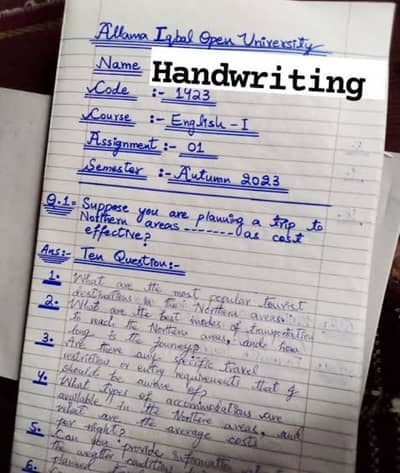 Allama Iqbal Open University
Name Handwriting
Code :- 1423
Course :- English - I
Assignment :- 01
Semester :- Autumn 2023
Q.1:- Suppose you are planning a trip to
Northern areas ------- as cost
effective?
Ans:- Ten Question:-
1. What are the most popular tourist
destinations in the Northern areas?
2. What are the best modes of transportation
to reach the Northern areas, and how
long is the journey?
3. Are there any specific travel
restriction or entry requirements that I
should be aware of?
4. What types of accommodations are
available in the Northern areas, and
what are the average costs
per night?
5. Can you provide
the weather condition
6.